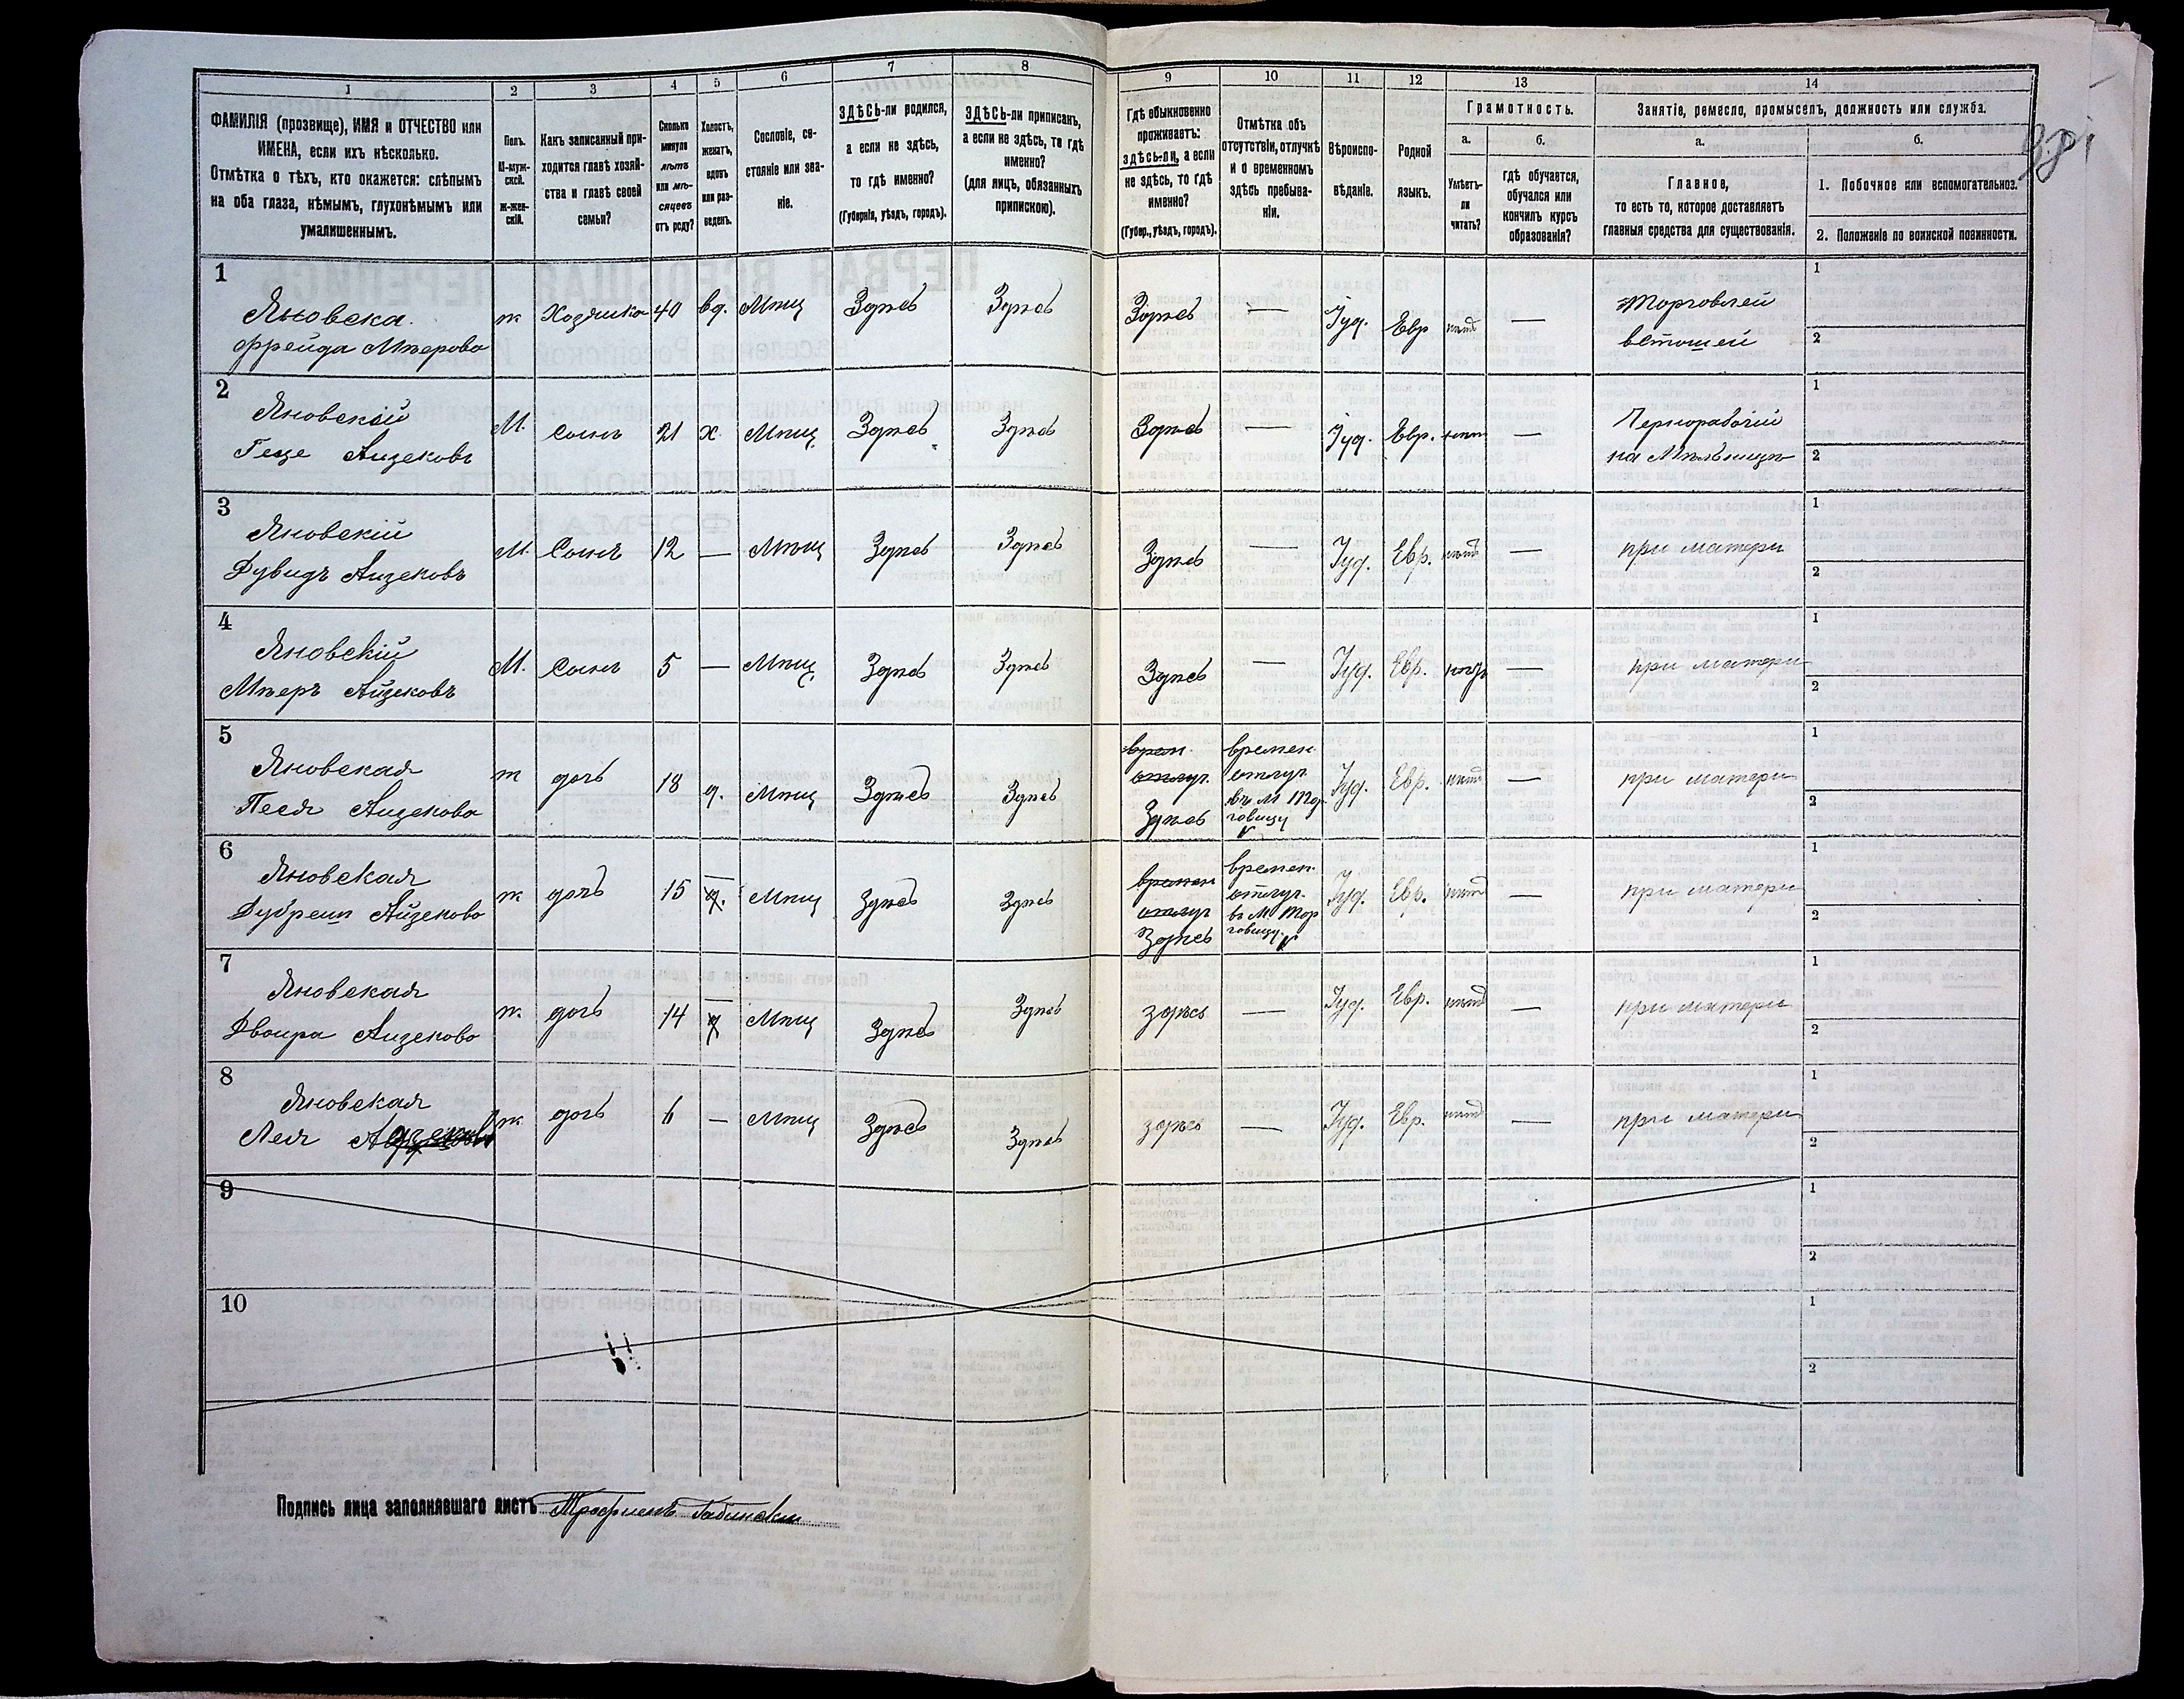 1 2 3 4 5 6 7 8 9 10 11 12 13 14
ФАМИЛІЯ (прозвище), ИМЯ и ОТЧЕСТВО или
ИМЕНА, если ихъ нѣсколько.
Отмѣтка о тѣхъ, кто окажется: слѣпымъ
на оба глаза, нѣмымъ, глухонѣмымъ или
умалишеннымъ.
Полъ.
М-муж-
ской.
Ж-жен-
скій.
Какъ записанный при-
ходится главѣ хозяй-
ства и главѣ своей
семьи?
Сколько
минуло
лѣтъ
или мѣ-
сяцевъ
отъ роду?
Холостъ,
женатъ,
вдовъ
или раз-
веденъ.
Сословіе, со-
стояніе или зва-
ніе.
ЗДѢСЬ-ли родился,
а если не здѣсь,
то гдѣ именно?
(Губернія, уѣздъ, городъ).
ЗДѢСЬ-ли приписанъ,
а если не здѣсь, то гдѣ
именно?
(для лицъ, обязанныхъ
припискою).
Гдѣ обыкновенно
проживаетъ:
здѣсь-ли, а если
не здѣсь, то гдѣ
именно?
(Губер., уѣздъ, городъ).
Отмѣтка объ
отсутствіи, отлучкѣ
и о временномъ
здѣсь пребыва-
ніи.
Вѣроиспо-
вѣданіе.
Родной
языкъ.
Грамотность.
а.
Умѣетъ-
ли
читать?
б.
гдѣ обучается,
обучался или
кончилъ курсъ
образованія?
Занятіе, ремесло, промыселъ, должность или служба.
а.
Главное,
то есть то, которое доставляетъ
главныя средства для существованія.
б.
1. Побочное или вспомогательное.
2. Положеніе по воинской повинности.
1
Яновска
Фрейда Мѣерова
ж Хозяйка 40 вд. Мѣщ Здѣсь Здѣсь Здѣсь — Іуд. Евр нѣтъ —
Торговлей
ветошей
1
2
2
Яновскій
Геце Аизековъ
М. Сынъ 21 х. Мѣщ Здѣсь Здѣсь Здѣсь — Іуд. Евр. —
Чернорабочій
на Мѣльницѣ
1
2
3
Яновскій
Дувидъ Аизековъ
М. Сынъ 12 — Мѣщ Здѣсь Здѣсь Здѣсь — Іуд. Евр. нѣтъ — при матери
1
2
4
Яновскій
Мѣеръ Айзековъ
М. Сынъ 5 — Мѣщ Здѣсь Здѣсь Здѣсь — Іуд. Евр. — при матери
1
2
5
Яновская
Песя Аизекова
ж дочь 18 д. Мѣщ Здѣсь Здѣсь
врем.
отлуч.
Здѣсь
времен.
отлуч.
въ М Тор
говицу
Іуд. Евр. нѣтъ — при матери
1
2
6
Яновская
Дубреш Айзекова
ж дочь 15 — д. Мѣщ Здѣсь Здѣсь
времен
отлуч
Здѣсь
времен.
отлуч.
въ М Тор
говицу.
Іуд. Евр. нѣтъ — при матери
1
2
7
Яновская
Двоира Аизекова
ж. дочь 14 — д Мѣщ Здѣсь Здѣсь здѣсь — Іуд. Евр. нѣтъ — при матери
1
2
8
Яновская
Лея
ж дочь 6 — Мѣщ Здѣсь Здѣсь здѣсь — Іуд. Евр. нѣтъ — при матери
1
2
9
1
2
10
1
2
Подпись лица заполнявшаго листъ